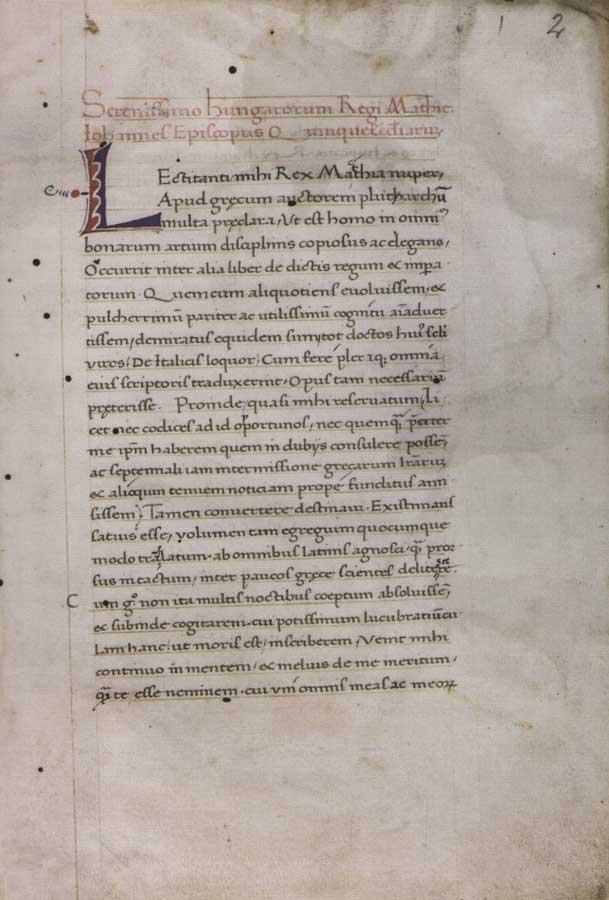 1 2
Serenissimo hungarorum Regi Mathie.
Iohannes Episcopus Quinqueecclesiarum
LEctitanti mihi Rex Mathia nuper,
Apud grecum auctorem plutharchū
multa pręclara, Vt est homo in omni
bonarum artium disciplinis copiosus ac elegans,
Occurrit inter alia liber de dictis regum & impera
torum. Quem cum aliquotiens euoluissem, &
pulcherrimū pariter ac utilissimū cognitu aīaduer
tissem, demiratus equidem sum, tot doctos
viros, De Italicis loquor, Cum fere omnia
eius scriptoris traduxerint, Opus tam necessariū
pręterisse. Proinde, quasi mihi reseruatum, li
cet nec codices ad id oportunos, nec quemq̄ pręter
me ipm̄ haberem quem in dubijs consulere possem,
ac septennali iam intermissione gręcarum lrārum
& alioqun tenuem noticiam prope funditus ami
sissem, Tamen conuertere destinaui. Existimans
satius esse, volumen tam egregium quocumque
modo tralatum, ab omnibus latinis agnosci, q̄ pror
sus intactum, inter paucos gręce scientes delitere.
C um g° non ita multis noctibus coeptum absoluissem,
& subinde cogitarem, cui potissimum lucubratiūcu
lam hanc, ut moris est, inscriberem, Venit mihi
continuo in mentem, & melius de me meritum,
q̄ te esse neminem, cui vni omnis meas ac meorꝝ